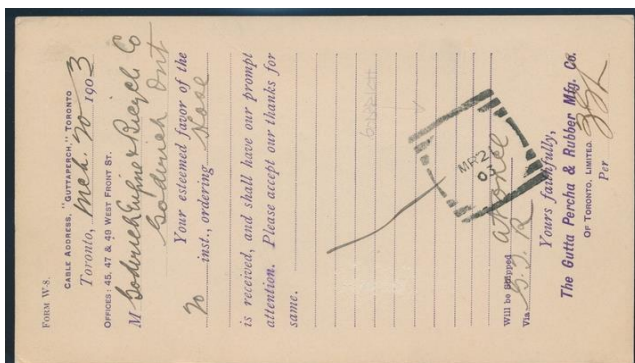 FORM W-8.
CABLE ADDRESS, "GUTTAPERCH," TORONTO
Toronto, Mch. 20 1903
OFFICES: 45, 47 & 49 WEST FRONT ST.
M Goderich Engine & Bicycle Co
Goderich Ont
Your esteemed favor of the
20 inst., ordering Hose
is received, and shall have our prompt
attention. Please accept our thanks for
same.
MR 2
03
Will be Shipped at once
Via G. T. R
Yours faithfully,
The Gutta Percha & Rubber Mfg. Co.
OF TORONTO, LIMITED.
Per